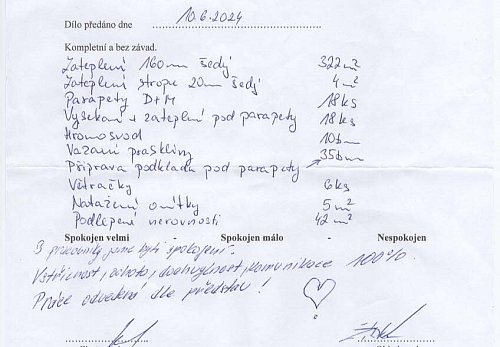 Dílo předáno dne 10.6.2024
Kompletní a bez závad.
Zateplení 160mm šedý 322 m²
Zateplení strope 20mm šedý 4 m²
Parapety D+M 18 ks
Vysekaní + zateplení pod parapety 18 ks
Hromosvod 10bm
Vazaní praskliny 35bm
Příprava podkladu pod parapety
Větračky 6ks
Natažení omítky 5 m²
Podlepení nerovnosti 42 m²
Spokojen velmi Spokojen málo - Nespokojen
S pracovníky jsme byli spokojeni.
Vstřícnost, ochota, dochvilnost, komunikace 100%.
Práce odvedená dle představ!